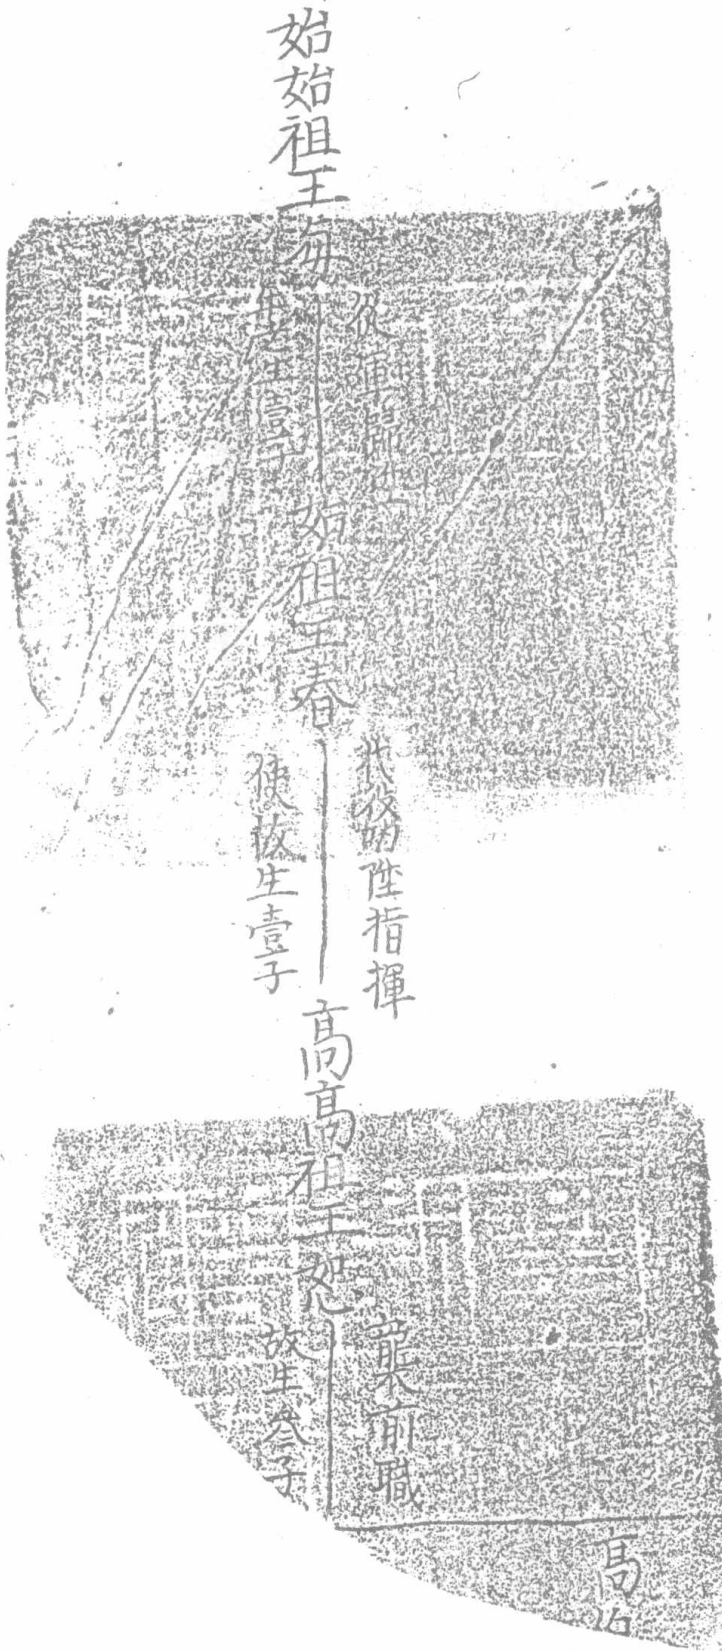 始始祖王海
從軍歸
年老生壹子
始祖王春
代役功陞指揮
使故生壹子
高高祖王恕
襲前職
故生叄子
高伯